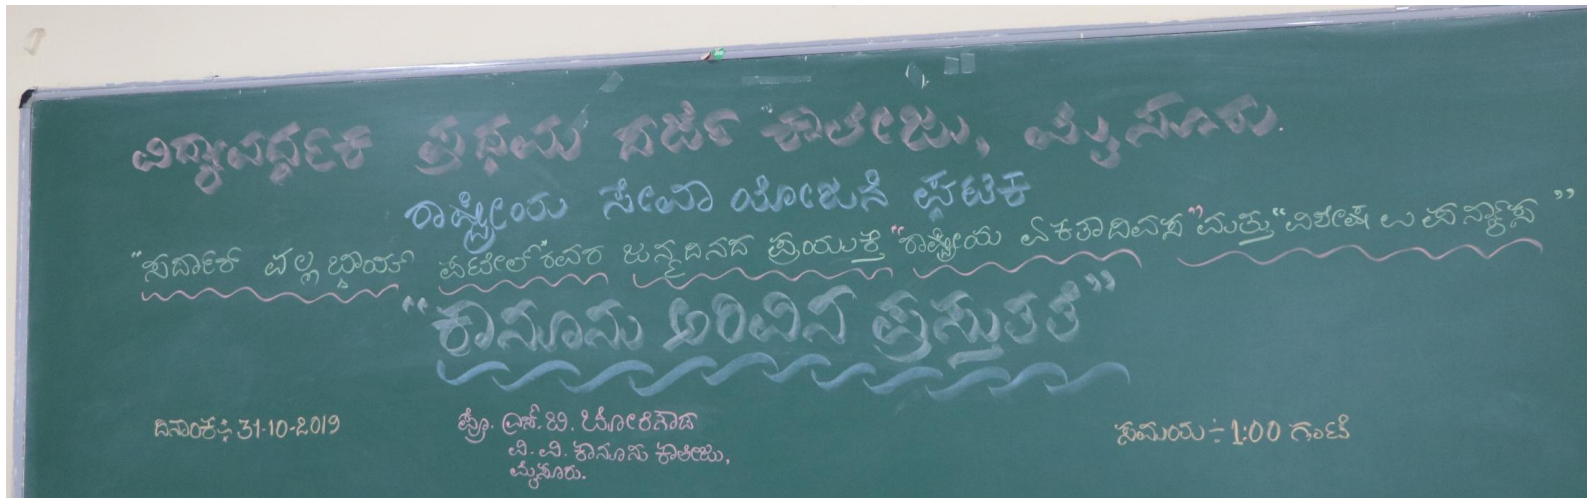 ವಿದ್ಯಾವರ್ಧಕ ಪ್ರಥಮ ದರ್ಜೆ ಕಾಲೇಜು, ಮೈಸೂರು.
ರಾಷ್ಟ್ರೀಯ ಸೇವಾ ಯೋಜನೆ ಘಟಕ
"ಸರ್ದಾರ್ ವಲ್ಲಭಾಯ್ ಪಟೇಲ್"ರವರ ಜನ್ಮದಿನದ ಪ್ರಯುಕ್ತ "ರಾಷ್ಟ್ರೀಯ ಏಕತಾದಿವಸ" ಮತ್ತು "ವಿಶೇಷ ಉಪನ್ಯಾಸ"
"ಕಾನೂನು ಅರಿವಿನ ಪ್ರಸ್ತುತತೆ"
ದಿನಾಂಕ÷ 31-10-2019
ಪ್ರೊ. ಎಸ್.ಬಿ. ಬೋರೇಗೌಡ
ವಿ. ವಿ. ಕಾನೂನು ಕಾಲೇಜು,
ಮೈಸೂರು.
ಸಮಯ÷ 1:00 ಗಂಟೆ